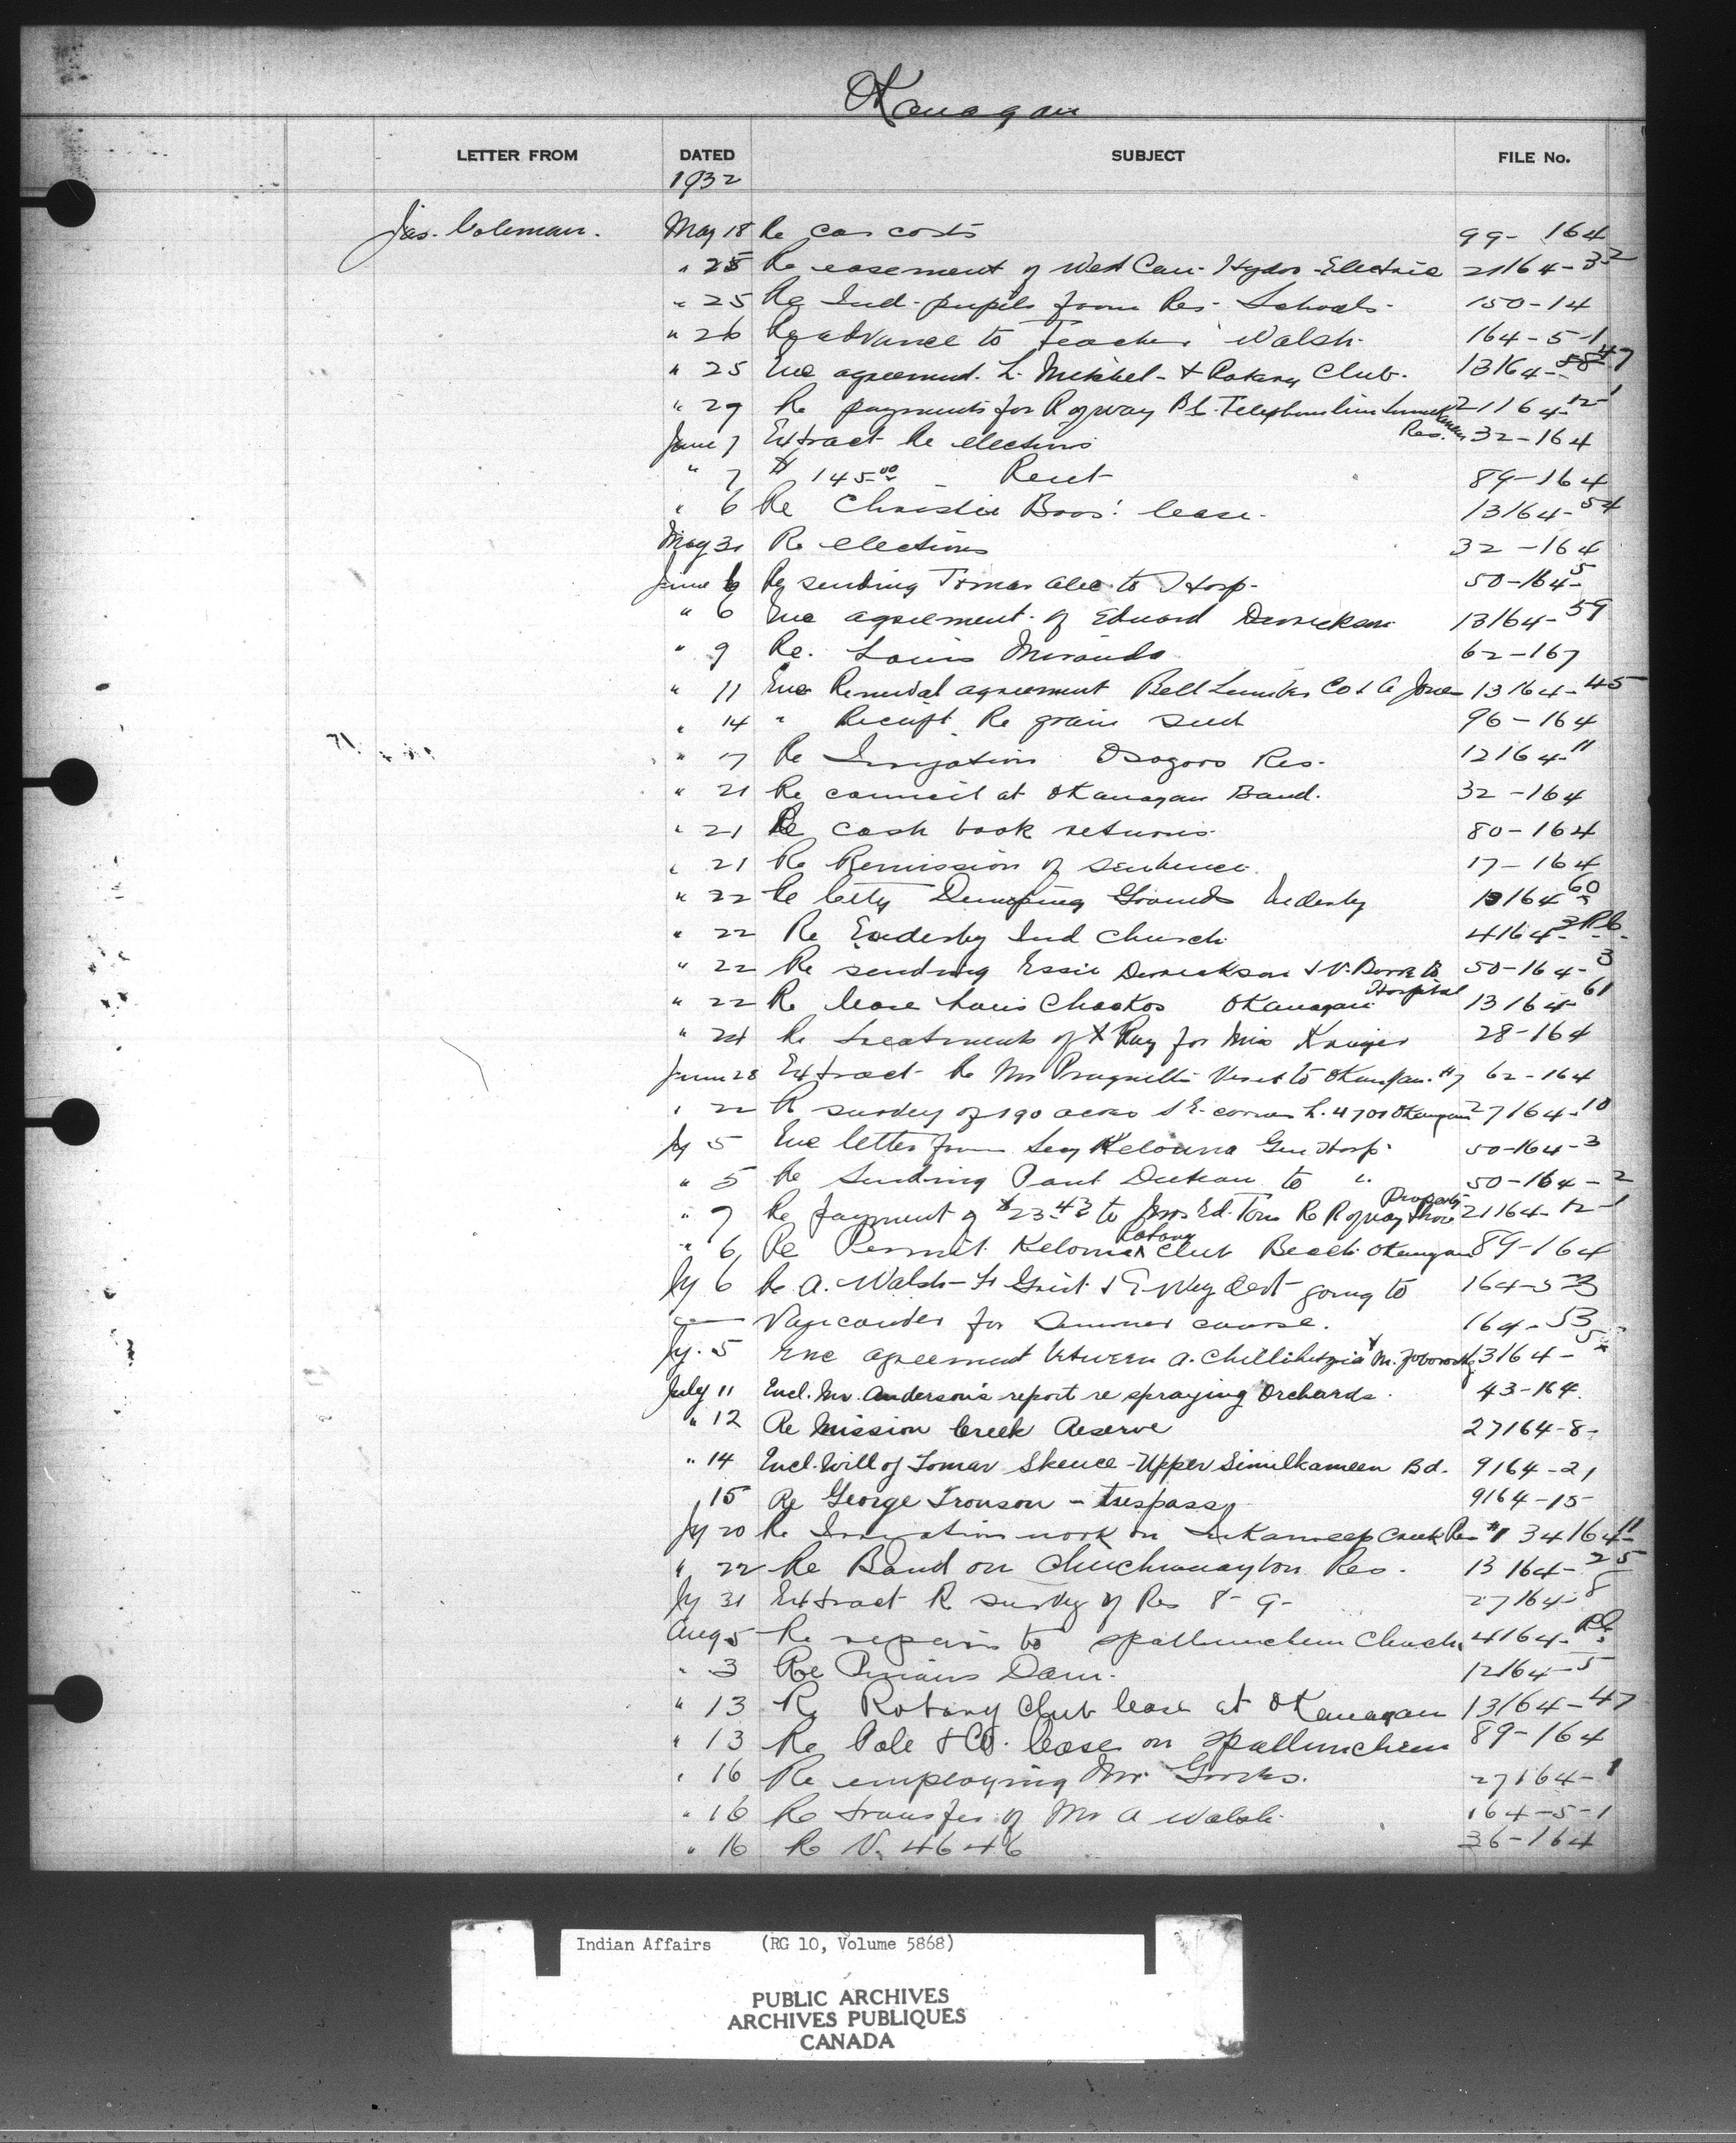 Okanagan
LETTER FROM DATED SUBJECT FILE No.
1932
Jas. Coleman. May 18 Re car costs 99-164
" 25 Re easement of West Can. Hydro-Electric 21164-3-2
" 25 Re Ind. pupils from Res. Schools. 150-14
" 26 Re advance to Teacher Walsh. 164-5-1
" 25 Enc agreement. L. Michel & Rotary Club. 13164-47
" 29 Re payments for R of way B.C. Telephone line 21164-12-1
Res.
June 7 Extract Re elections 32-164
" 7 $145.00 - Rent 89-164
" 6 Re Christie Bros. lease. 13164-54
May 31 Re elections 32-164
June 6 Re sending Tomas Alec to Hosp. 50-164-5
" 6 Enc agreement of Edward Derrickson 13164-59
" 9 Re. Louis Miranda 62-167
" 11 Enc Renewal agreement Bell Lumber Co & A Jones 13164-45
" 14 " Receipt Re grain seed 96-164
" 17 Re Irrigation Osoyoos Res. 12164-11
" 21 Re council at Okanagan Band. 32-164
" 21 Re cash book returns. 80-164
" 21 Re Remission of sentence. 17-164
" 22 Re City Dumping Grounds Enderby 13164-60
" 22 Re Enderby Ind Church. 4164-
" 22 Re sending Essie Derrickson & V. to 50-164-3
Hospital
" 22 Re lease Louis Chaokos Okanagan 13164-61
" 24 Re treatment of X Ray for Miss Kruger 28-164
June 28 Extract Re Mr Pragnell's Visit to Okanagan. #7 62-164
" 22 R survey of 190 acres S.E. corner L. 4701 Okanagan 27164-10
Jy 5 Enc letter from Secy Kelowna Gen Hosp. 50-164-3
" 5 Re Sending Paul to " 50-164-2
Property
" 7 Re payment of $23.43 to Mrs Ed. Tom Re R of way 21164-12-1
Rotary
" 6 Re Permit Kelowna Club Beach Okanagan 89-164
Jy 6 Re A. Walsh going to 164-5-3
Vancouver for Summer course. 164-53
Jy. 5 Enc agreement between A. Chillihetzia & M. 13164-5
July 11 Encl. Mr. Anderson's report re spraying Orchards. 43-164.
" 12 Re Mission Creek Reserve 27164-8-
" 14 Encl. Will of Tomar Skeuce - Upper Similkameen Bd. 9164-21
" 15 Re George Tronson - trespass 9164-15
Jy 20 Re Irrigation work on Inkameep Creek Res #1 34164-11
" 22 Re Band on Chuchuwayton Res. 13164-25
Jy 31 Extract R survey of Res 8-9- 27164-8
Aug 5 Re repairs to Spallumcheen Church 4164-
" 3 Re Dam. 12164-5
" 13 Re Rotary Club lease at Okanagan 13164-47
" 13 Re Pole & Co. lease on Spallumcheen 89-164
" 16 Re employing Mr 27164-1
" 16 Re transfer of Mr A Walsh. 164-5-1
" 16 Re V. 4646 36-164
Indian Affairs (RG 10, Volume 5868)
PUBLIC ARCHIVES
ARCHIVES PUBLIQUES
CANADA